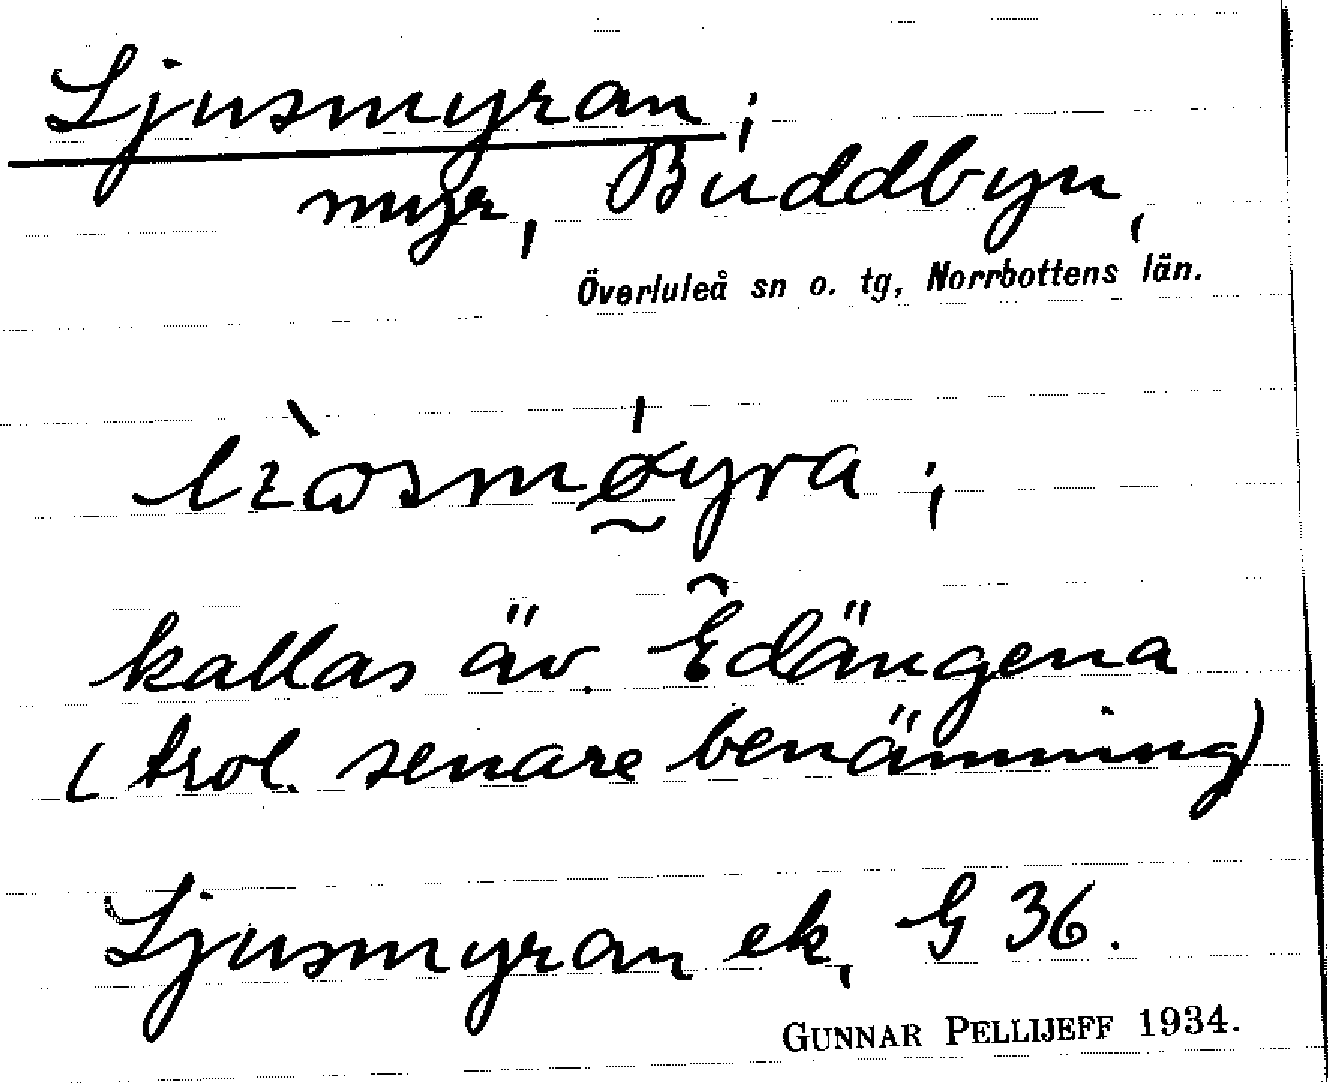 Ljusmyran;
myr, Buddbyn,
Överluleå sn o. tg, Norrbottens län.
kallas äv. Êdängena
(trol. senare benämning)
Ljusmyran ek, G 36.
GUNNAR PELLIJEFF 1934.